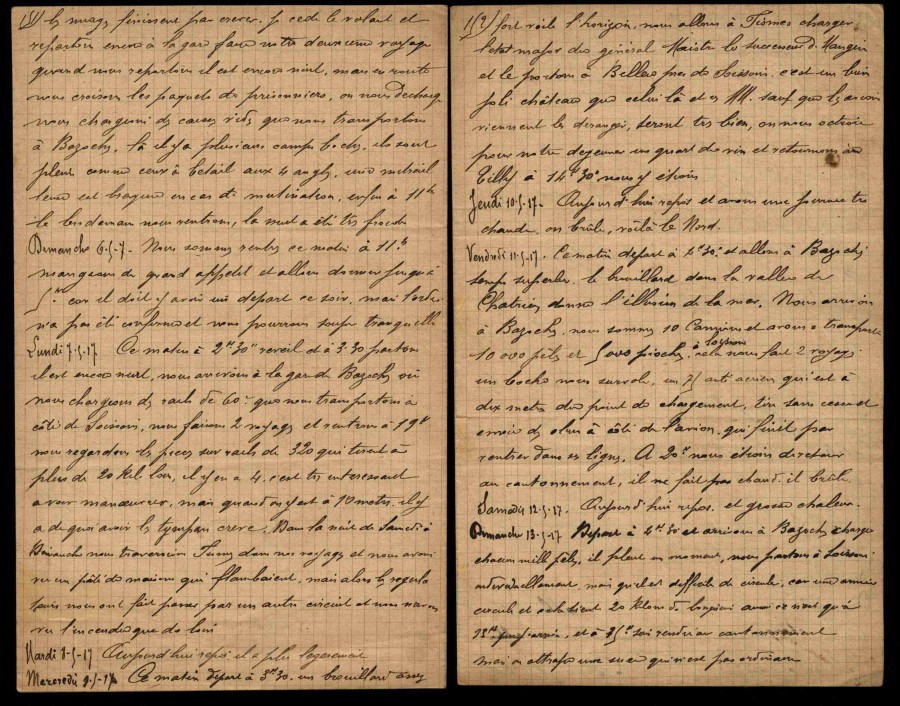 (51) les nuages finissent par crever. je cede le volant et
repartons encore à la gare faire notre deuxieme voyage
quand nous repartons il est encore nuit, mais en route
nous croisons les paquets de prisonniers, on nous decharge
nous chargeons des caisses vides que nous transportons
à Bazoches, là il y a plusieurs camps boches, ils sont
pleins comme ceux à bétail aux 4 angles, une mitrail
leuse est braquée en cas de mutination, enfin à 11h
le lendemain nous rentrons, la nuit a été très froide
Dimanche 6-5-7- Nous sommes rentrés ce matin à 11h
mangeons de grand appetit et allons dormir jusqu'à
5h car il doit y avoir un depart ce soir, mais l'ordre
n'a pas été confirmé et nous pourrons souper tranquille
Lundi 7-5-17 Ce matin à 2h30 reveil et à 3.30 partons
il est encore nuit, nous arrivons à la gare de Bazoches où
nous chargeons des rails de 60 que nous transportons à
côté de Soissons, nous faisons 2 voyages et rentrons à 19h
nous regardons les pieces sur rails de 320 qui tirent à
plus de 20 kil loin, il y en a 4, c'est très interessant
a voir manœuvrer, mais quand on est à 10 metres il y
a de quoi avoir les tympans crevé. Dans la nuit de Samedi à
Dimanche nous traversions dans nos voyages et nous avons
vu un pâté de maisons qui flambaient, mais alors les regula
teurs nous ont fait passer par un autre circuit et nous n'avons
vu l'incendie que de loin
Mardi 8-5-17 Aujourd'hui repos il a plu legerement
Mercredi 9-5-17 Ce matin depart à 5h30. un brouillard assez
(52) fort voile l'horizon, nous allons à Fismes charger
l'etat major du général Maistre le successeur de Mangin
et le portons à Belleu pres de Soissons, c'est un bien
joli château que celui là et ces MM. sauf que les avions
viennent les deranger, seront très bien, on nous octroie
pour notre dejeuner un quart de vin et retournons au
à 14h30 nous y étions
Jeudi 10-5-17- Aujourd'hui repos et avons une journée tres
chaude on brûle, voilà le Nord.
Vendredi 11-5-17. Ce matin depart à 30 et allons à Bazoches
temps superbe. le brouillard dans la vallée de
donne l'illusion de la mer. Nous arrivons
à Bazoches, nous sommes 10 Camions et avons à transporter
10 000 pelles et 5000 pioches à Soissons, cela nous fait 2 voyages
un boche nous survole, un 75 anti aerien qui est à
dix metres du point de chargement, tire sans cesse et
envoie des obus à côté de l'avion, qui finit par
rentrer dans ses lignes. A 20h nous étions de retour
au cantonnement, il ne fait pas chaud il brûle.
Samedi 12-5-17. Aujourd'hui repos, et grosse chaleur.
Dimanche 13-5-17 Depart à 4h30 et arrivons à Bazoches charger
chacun mille pelles, il pleut en moment, nous partons à Soissons
mais qu'il est difficile de circuler, car une armée
circule et cela tient 20 klom de longueur aussi ce n'est qu'à
et à soir rendu au cantonnement
mais on attrapa une suée qui n'est pas ordinaire